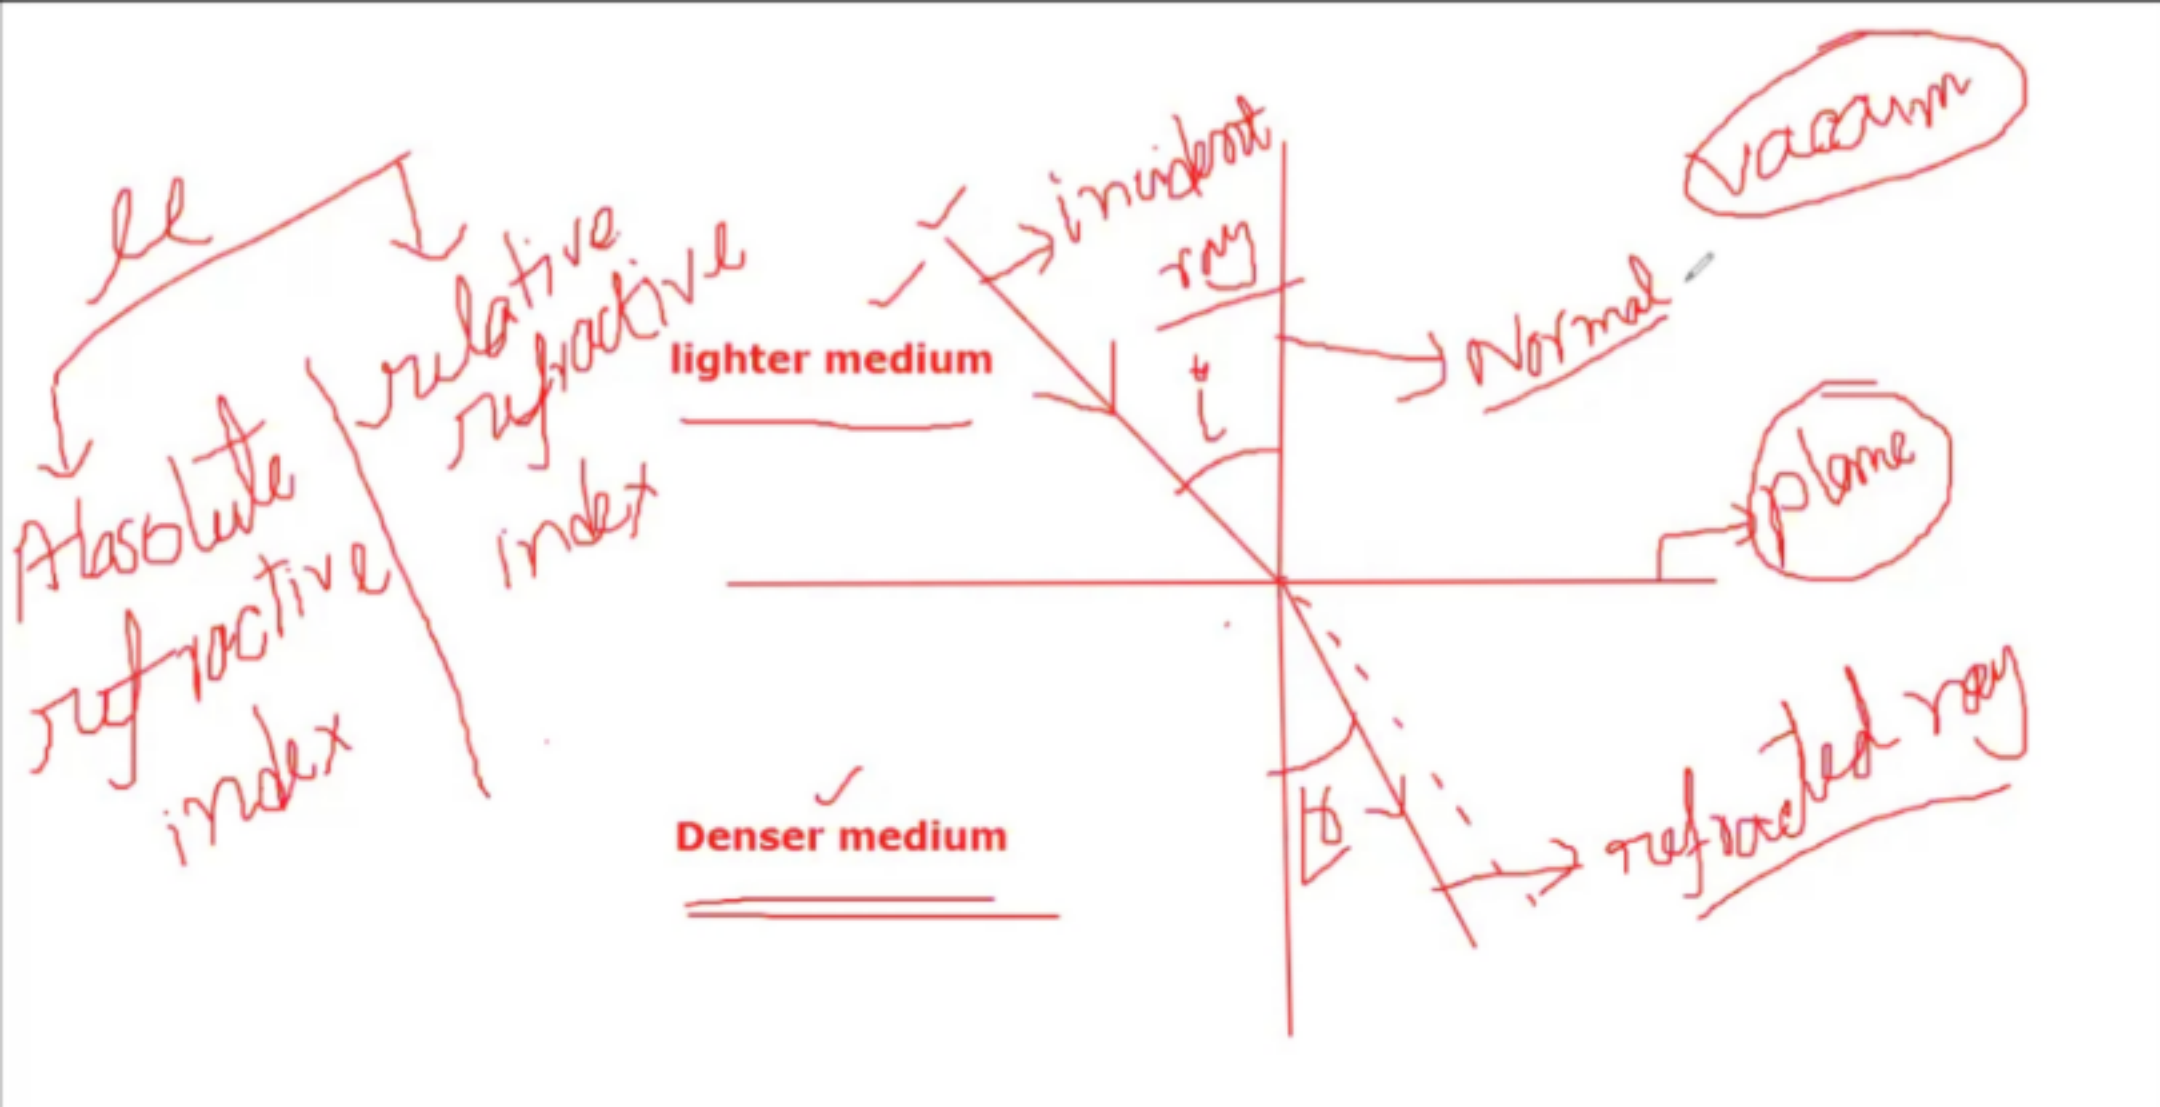 μ
Absolute
refractive
index
relative
refractive
index
lighter medium
Denser medium
incident
ray
i
Normal
vacaum
plane
refracted ray